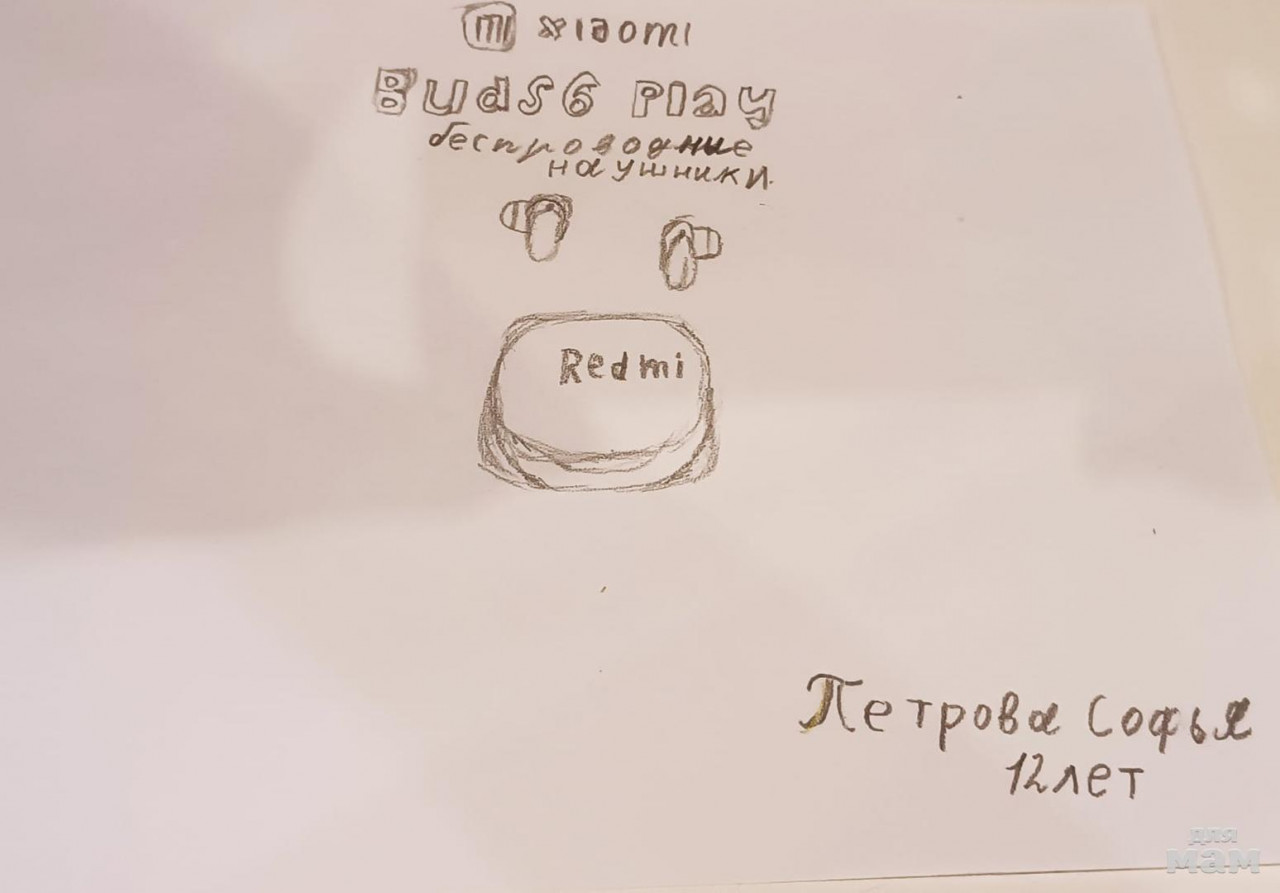 mi xiaomi
Buds6 Play
беспроводные
наушники.
Redmi
Петрова Софья
12 лет
для
мам